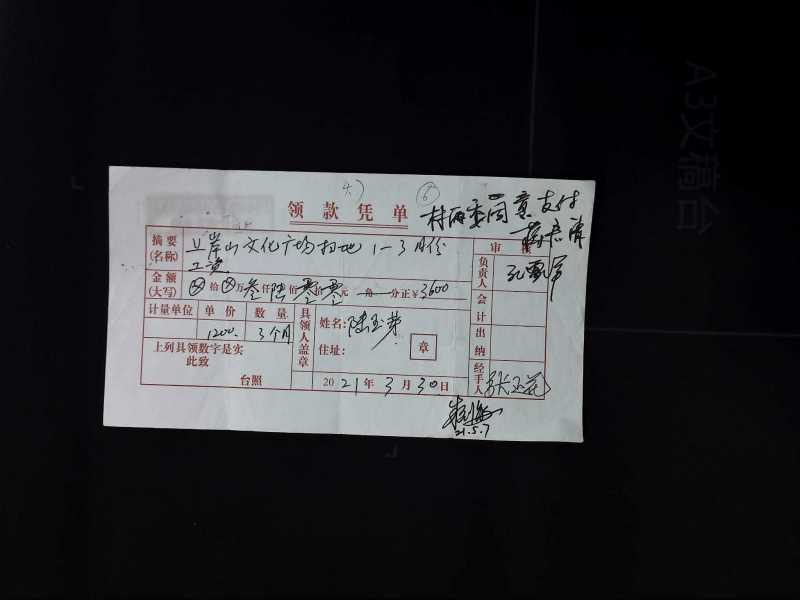 A3文稿台
⑥
领款凭单
村两委同意支付
摘要
(名称)
岸山文化广场扫地1-3月份
工资
审
金额
(大写)
⊗拾⊗万叁仟陆佰零拾零元 角 分正¥3600
负责人
会计
计量单位 单价 数量
1200 3个月
具领人盖章
姓名:陆玉芽
住址:
章
出纳
上列具领数字是实
此致
台照
2021年3月30日
经手人
21.5.7